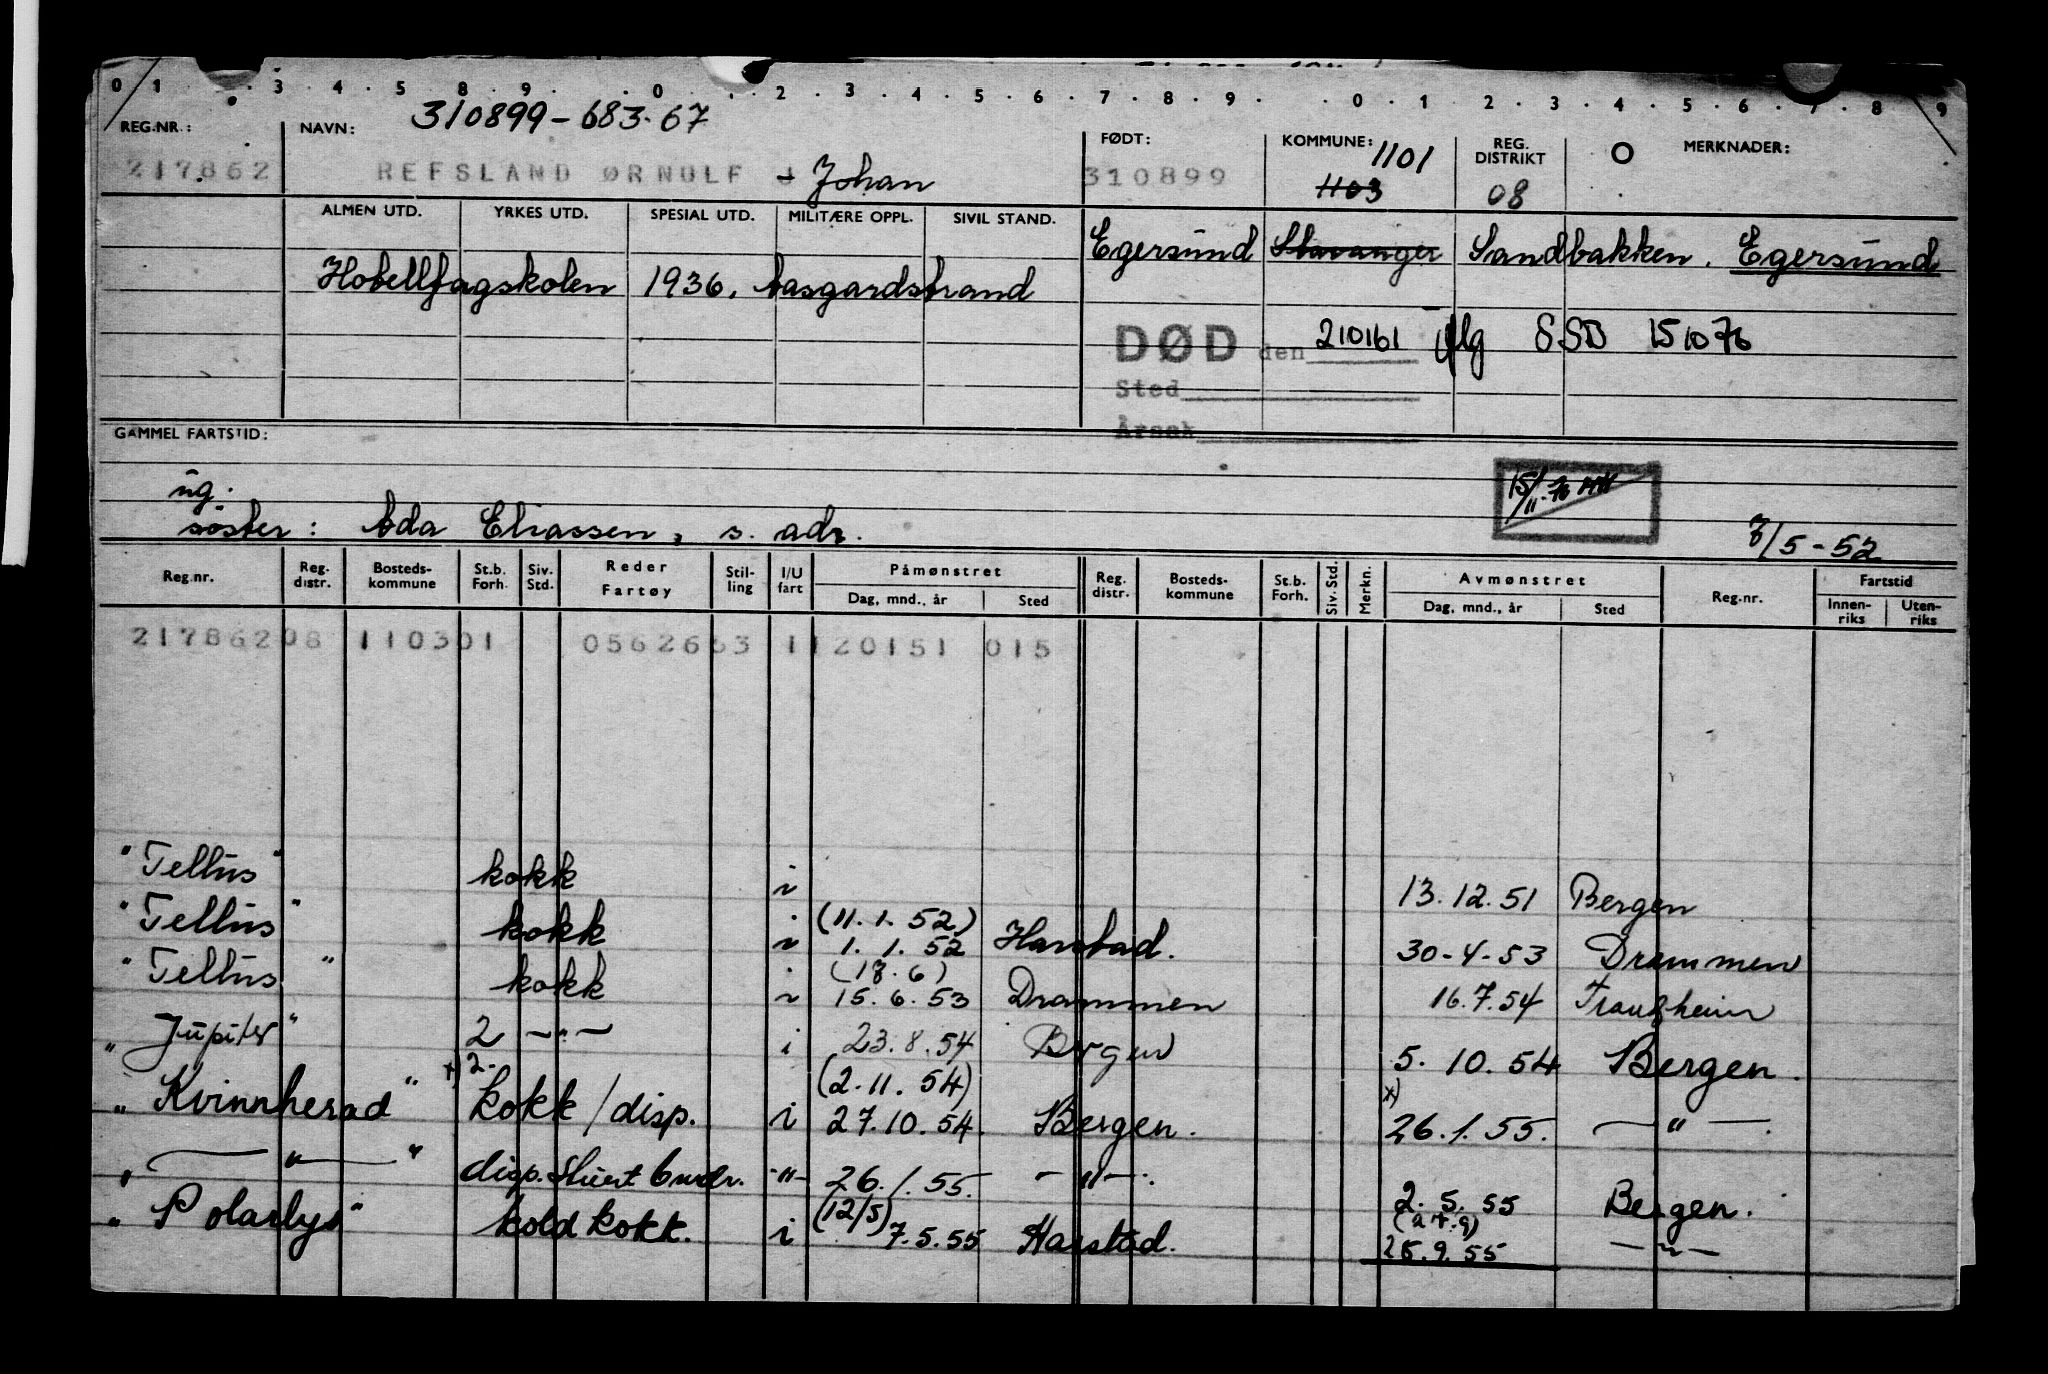 0 1 . 3 . 4 . 5 . 8 . 9 . . 0 . . 2 . 3 . 4 . 5 . 6 . 7 . 8 . 9 . . 0 . 1 . 2 . 3 . 4 . 5 . 6 . 7 . 8 . 9
310899-683.67
REG.NR.: NAVN: FØDT: KOMMUNE: 1101 REG. DISTRIKT O MERKNADER:
217862 REFSLAND ØRNULF J Johan 310899 1103 08
ALMEN UTD. YRKES UTD. SPESIAL UTD. MILITÆRE OPPL. SIVIL STAND.
Egersund Stavanger Sandbakken. Egersund
Hotellfagskolen 1936, Aasgardstrand
DØD den 210161 iflg SSB 151076
Sted
Årsak
GAMMEL FARTSTID:
ug.
søster: Ada Eliassen, s. adr.
15/11.76
7/5-52
Reg.nr. Reg. distr. Bosteds-kommune St.b. Forh. Siv. Std. Reder Fartøy Stil-ling I/U fart Påmønstret Reg. distr. Bosteds-kommune St.b. Forh. Siv. Std. Merkn. Avmønstret Reg.nr. Fartstid
Dag, mnd., år Sted Dag, mnd., år Sted Innen-riks Uten-riks
21786208 110301 0562663 1120151 015
"Tellus" kokk i 13.12.51 Bergen
"Tellus" kokk i (11.1.52) 1.1.52 Harstad. 30-4-53 Drammen
"Tellus" kokk i (18.6) 15.6.53 Drammen 16.7.54
"Jupiter" 2 —"— i 23.8.54 Bergen 5.10.54 Bergen.
"Kvinnherad" x) 2. kokk/disp. i (2.11.54) 27.10.54 Bergen. x) 26.1.55. —"—.
" —"— " disp. Stuert -"- 26.1.55. -"-. 2.5.55 Bergen.
"Polarlys" kold kokk. i (12/5) 7.5.55 Harstad. (27.9) 25.9.55 —"—